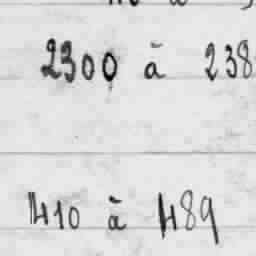 2300 à 238
410 à 489